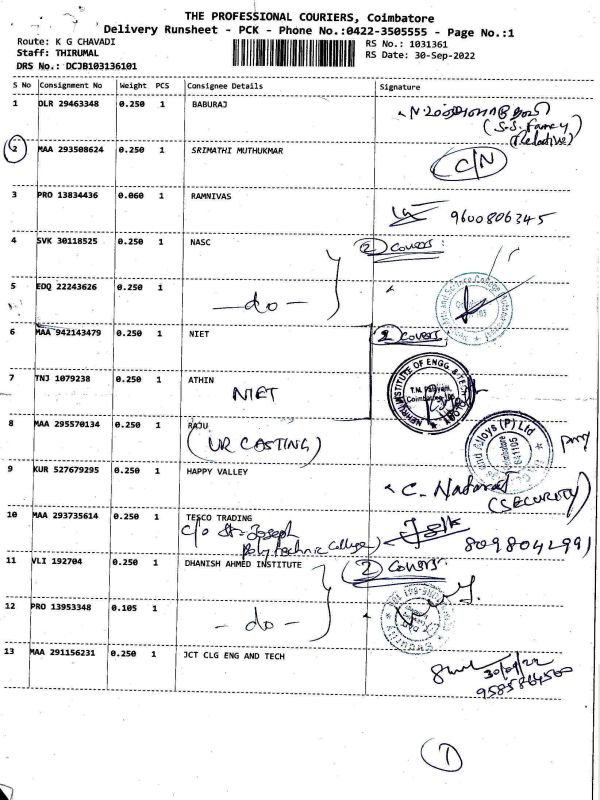 THE PROFESSIONAL COURIERS, Coimbatore
Delivery Runsheet - PCK - Phone No.:0422-3505555 - Page No.:1
Route: K G CHAVADI
Staff: THIRUMAL
DRS No.: DCJB103136101
RS No.: 1031361
RS Date: 30-Sep-2022
S No Consignment No Weight PCS Consignee Details Signature
1 DLR 29463348 0.250 1 BABURAJ
(Relative)
2 MAA 293508624 0.250 1 SRIMATHI MUTHUKMAR C/N
3 PRO 13834436 0.060 1 RAMNIVAS 9600806345
4 SVK 30118525 0.250 1 NASC (2) covers:
5 EDQ 22243626 0.250 1 -do-
6 MAA 942143479 0.250 1 NIET (2) covers:
NEHRU INSTITUTE OF ENGG. & TECH
T.M. Palayam,
Coimbatore
7 TNJ 1079238 0.250 1 ATHIN
NIET
8 MAA 295570134 0.250 1 RAJU
(UR CASTING)
Alloys (P) Ltd
9 KUR 527679295 0.250 1 HAPPY VALLEY
C. Nataraj
(SECURITY)
10 MAA 293735614 0.250 1 TESCO TRADING
c/o St-Joseph
Polytechnic College)
8098042991
11 VLI 192704 0.250 1 DHANISH AHMED INSTITUTE (2) covers:
12 PRO 13953348 0.105 1 -do-
13 MAA 291156231 0.250 1 JCT CLG ENG AND TECH
30/09/22
1